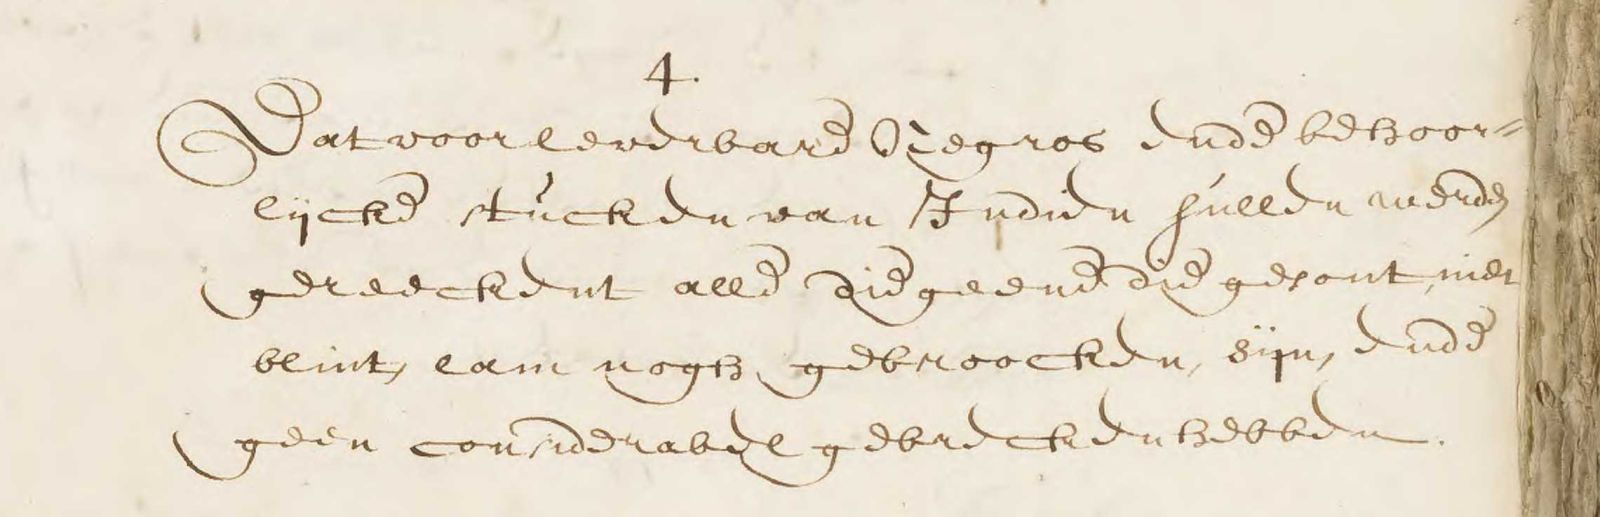 4.
Dat voor leverbare Negros ende behoor-
lijcke stucken van Indien sullen werden
gereeckent alle diegeene die gesont, niet
blint, lam nogh gebroocken, sijn, ende
geen considerabel gebrecken hebben.